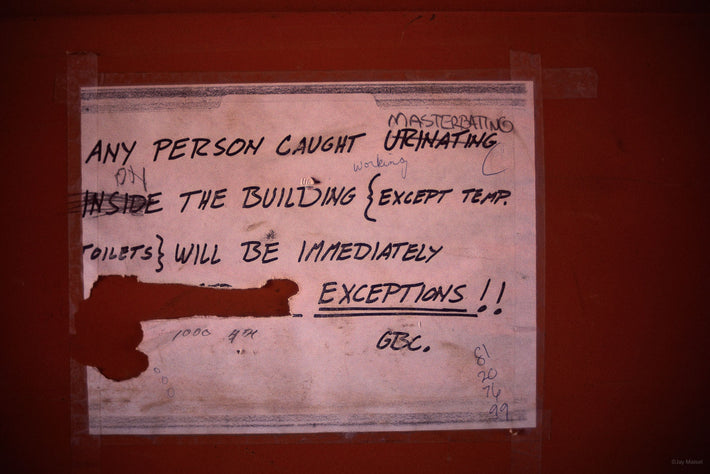 MASTERBATING
ANY PERSON CAUGHT URINATING
working
ON
INSIDE THE BUILDING {EXCEPT TEMP.
TOILETS} WILL BE IMMEDIATELY
EXCEPTIONS!!
1000
GBC.
81
20
76
99
©Jay Maisel